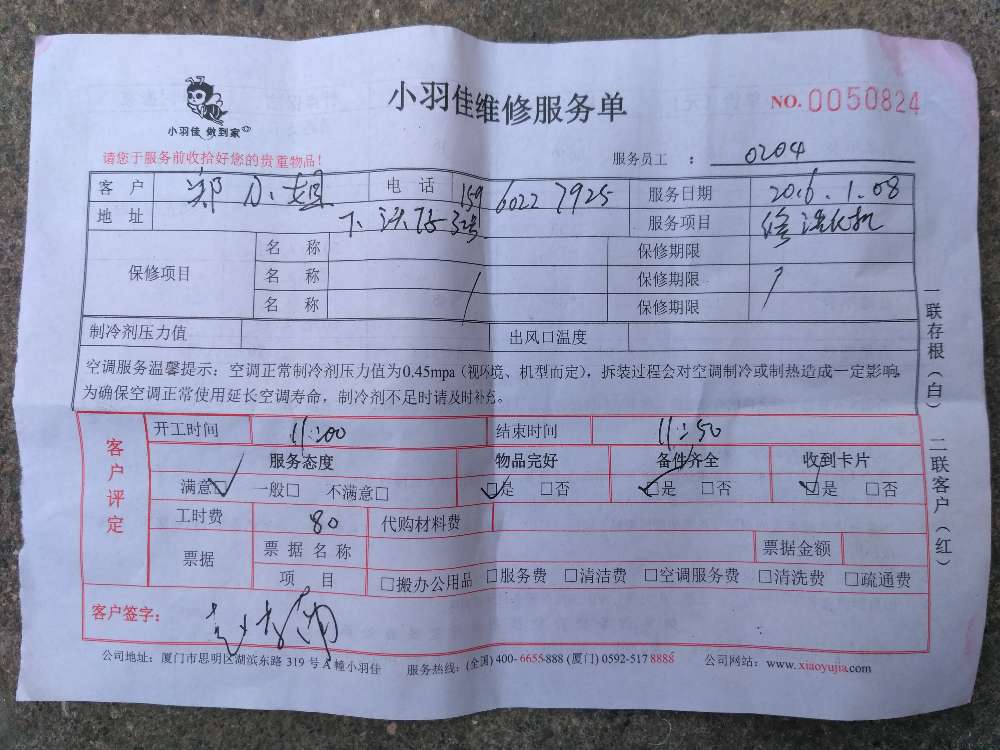 小羽佳 做到家
小羽佳维修服务单
NO. 0050824
请您于服务前收拾好您的贵重物品!
服务员工 : 0204
客户 郑小姐 电话 159 6022 7925 服务日期 2016.1.08
地址 32号 服务项目 修洗衣机
保修项目 名称 保修期限
名称 保修期限
名称 保修期限
制冷剂压力值 出风口温度
空调服务温馨提示：空调正常制冷剂压力值为0.45mpa（视环境、机型而定），拆装过程会对空调制冷或制热造成一定影响，
为确保空调正常使用延长空调寿命，制冷剂不足时请及时补充。
客户评定
开工时间 11:00 结束时间 11:50
服务态度 物品完好 备件齐全 收到卡片
满意□ 一般□ 不满意□ □是 □否 □是 □否 □是 □否
工时费 80 代购材料费
票据 票据名称 票据金额
项目 □搬办公用品 □服务费 □清洁费 □空调服务费 □清洗费 □疏通费
客户签字:
公司地址：厦门市思明区湖滨东路 319 号 A 幢小羽佳 服务热线：(全国) 400-6655-888 (厦门) 0592-517 8888 公司网站：www.xiaoyujia.com
一联存根（白） 二联客户（红）